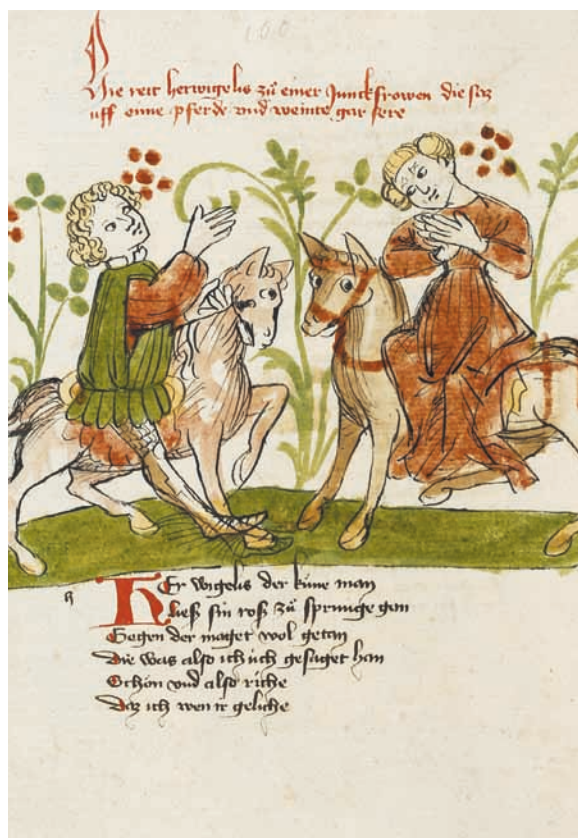 160
Hie reit her wigelis zů einer Junckfrowen die saz
uff eime pferde vnd weinte gar sere
h
HEr wigelis der küne man
Ließ sin roß zů sprunge gan
Gegen der maget wol getan
Die was also ich uch gesaget han
Schön vnd also riche
Daz ich wen ir geliche